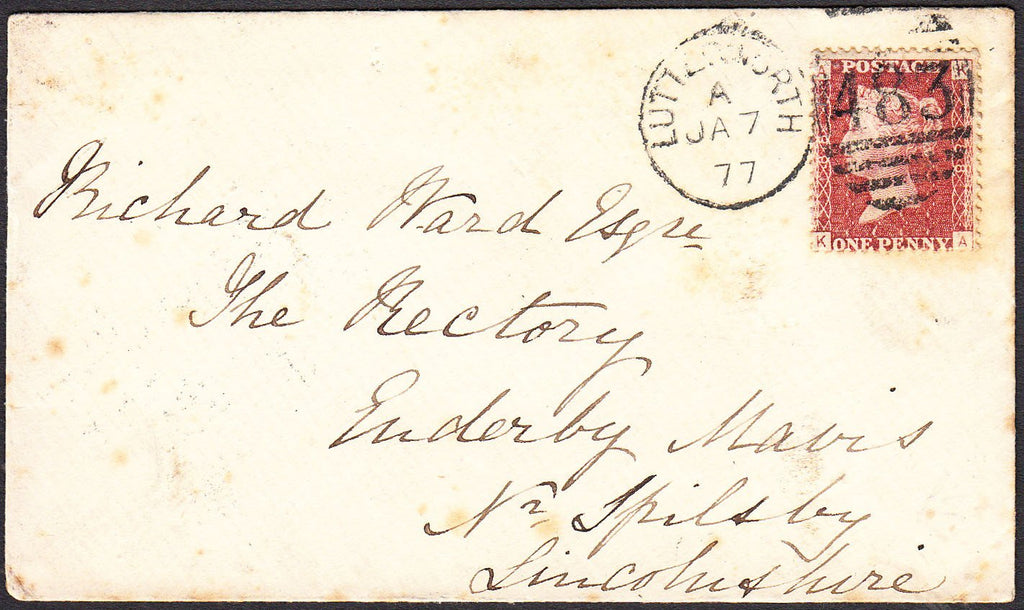 LUTTERWORTH
A
JA 7
77
483
A POSTAGE K
K ONE PENNY A
Richard Ward Esqre
The Rectory
Enderby Mavis
Nr Spilsby
Lincolnshire